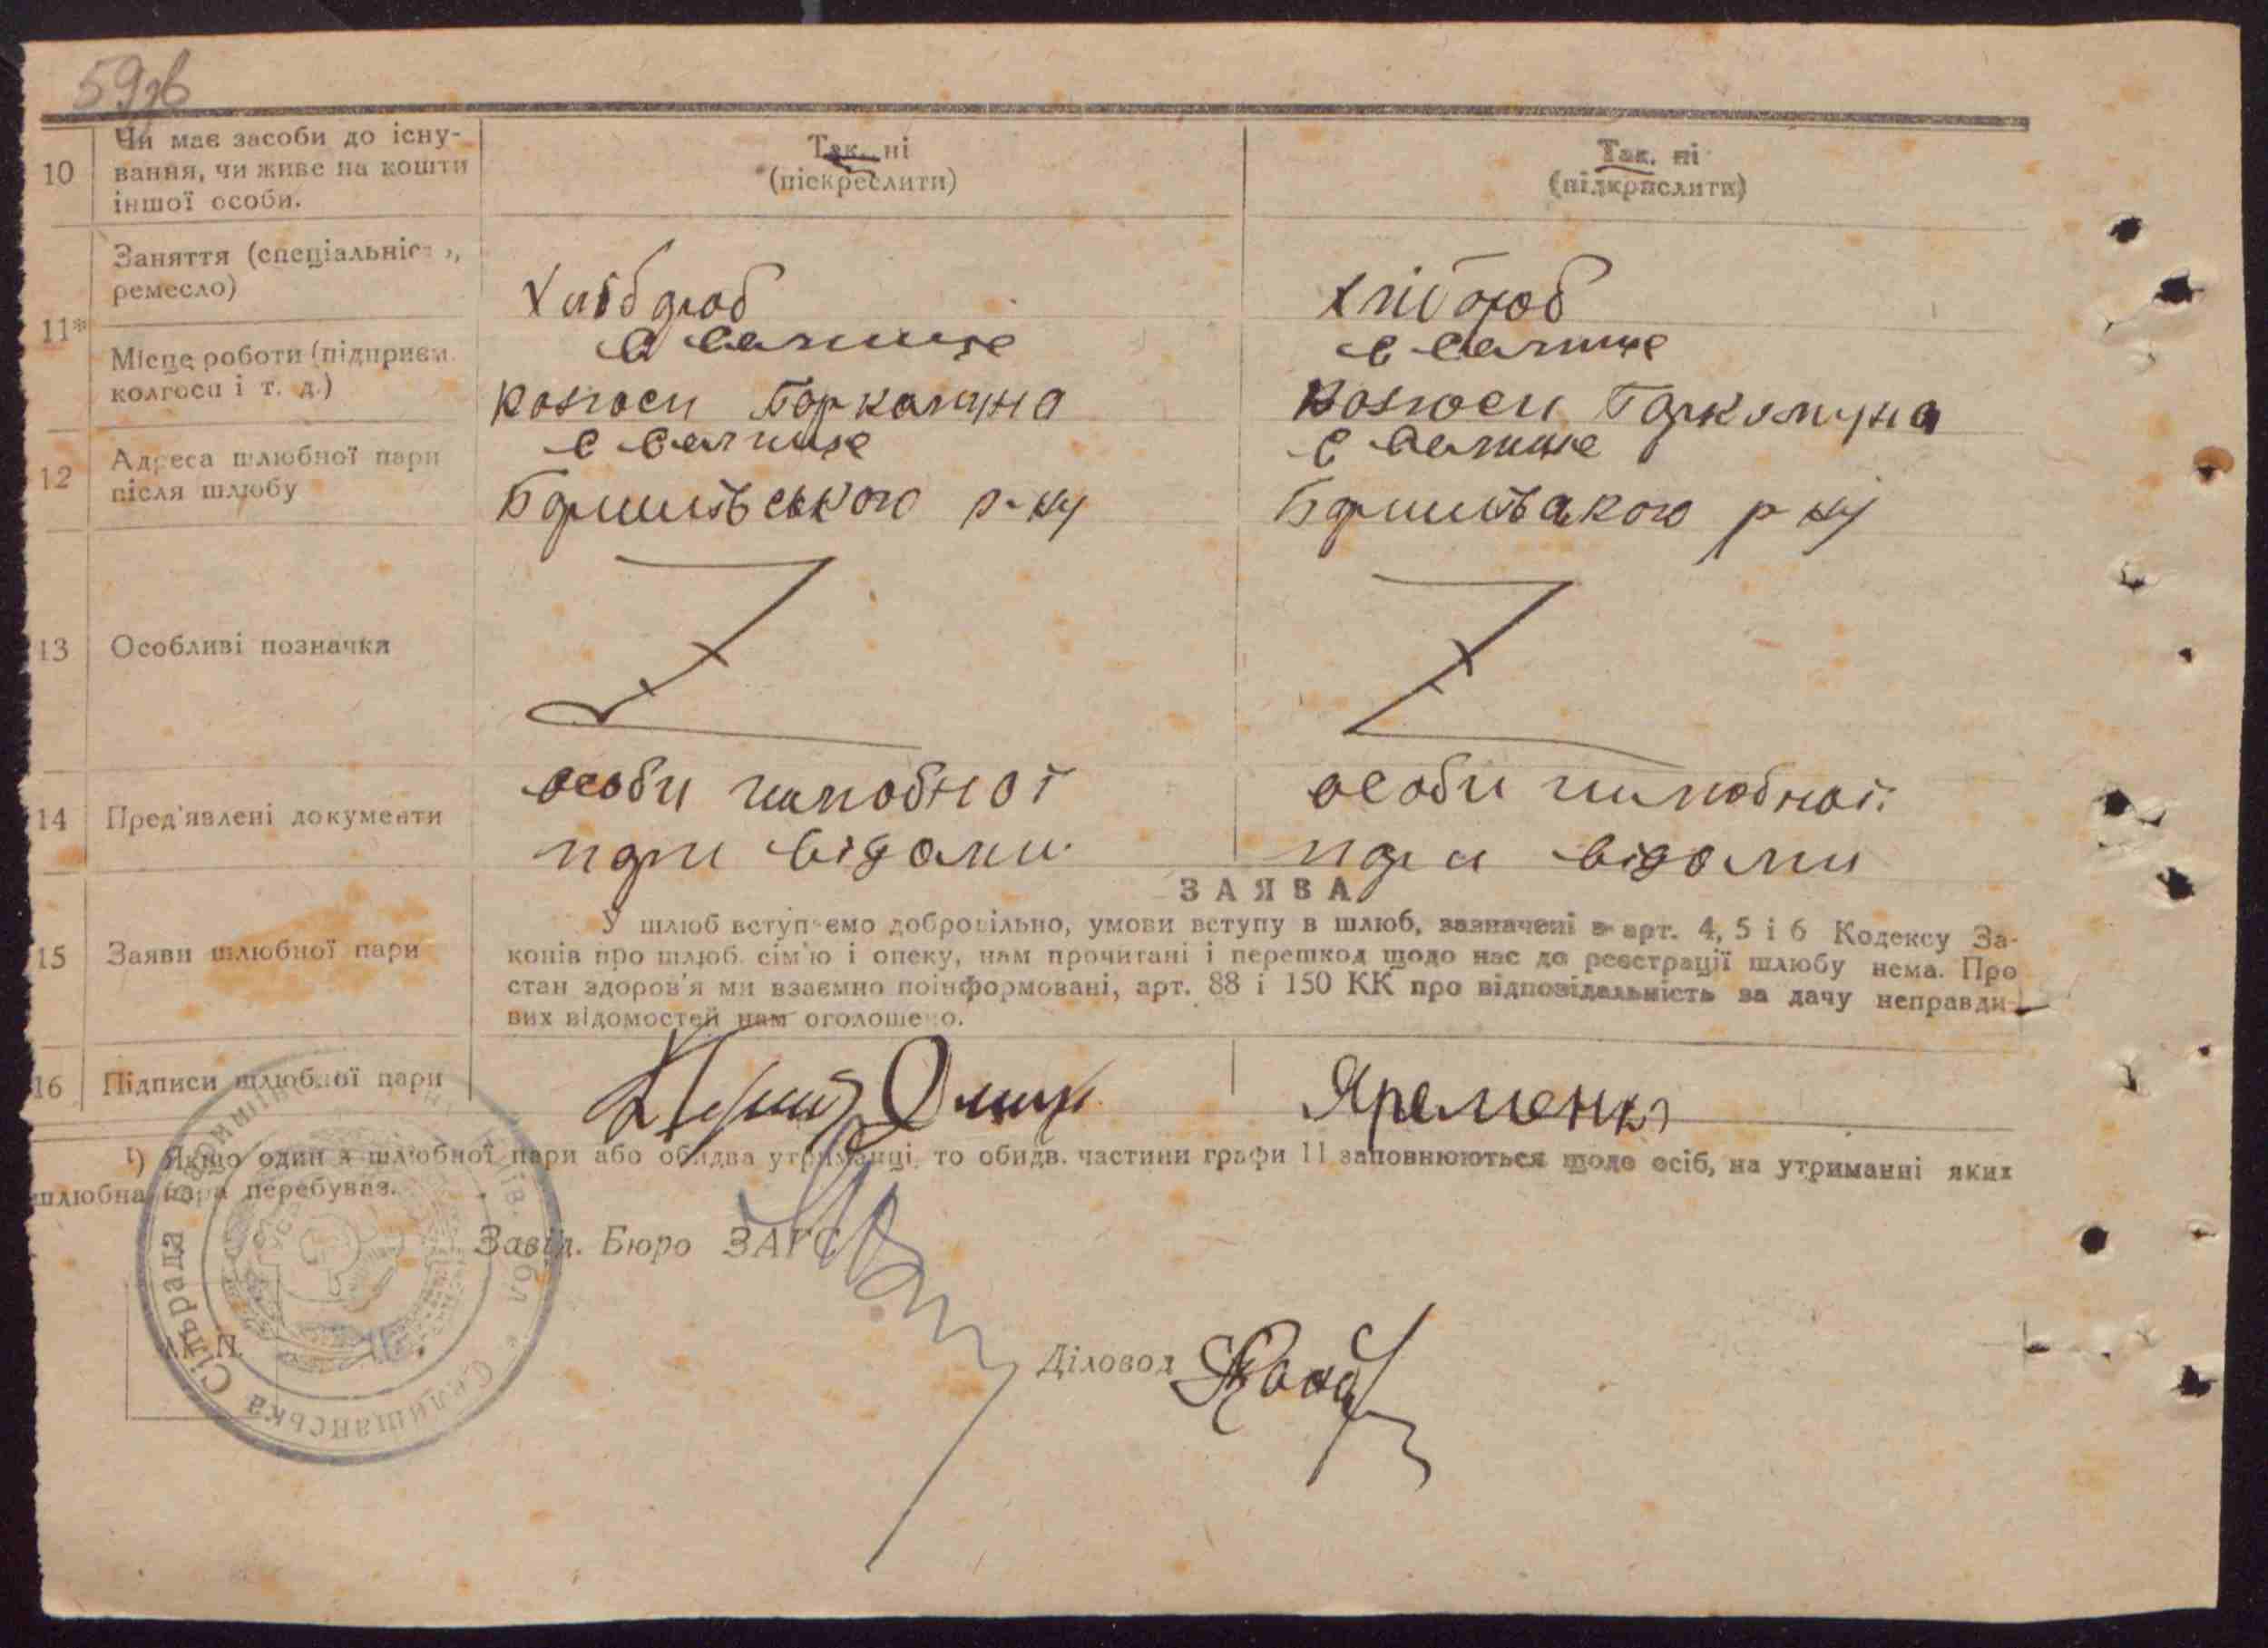 59зв
10
Чи має засоби до існу-
вання, чи живе на кошти
іншої особи.
Так. ні
(піскреслити)
Так. ні
(підкрислити)
11*
Заняття (спеціальніс
ремесло)
Хлібороб
Хлібороб
Місце роботи (підприєм.
колгосп і т. д.)
с Селище
колгосп Паркомуна
с Селище
колгосп Паркомуна
12
Адреса шлюбної пари
після шлюбу
с Селище
Баришівського р-ну
с Селище
Баришівського р-ну
13
Особливі позначки
14
Пред'явлені документи
особи шлюбної
пари відоми
особи шлюбної
пари відоми
15
Заяви шлюбної пари
ЗАЯВА
У шлюб вступаємо добровільно, умови вступу в шлюб, зазначені в арт. 4, 5 і 6 Кодексу За-
конів про шлюб. сім'ю і опеку, нам прочитані і перешкод щодо нас до реєстрації шлюбу нема. Про
стан здоров'я ми взаємно поінформовані, арт. 88 і 150 КК про відповідальність за дачу неправди-
вих відомостей нам оголошено.
16
Підписи шлюбної пари
Яременко
¹) Якщо один з шлюбної пари або обидва утриманці, то обидв. частини графи 11 заповнюються щодо осіб, на утриманні яких
шлюбна пара перебуває.
Завід. Бюро ЗАГС
Діловод
Селищанська Сільрада